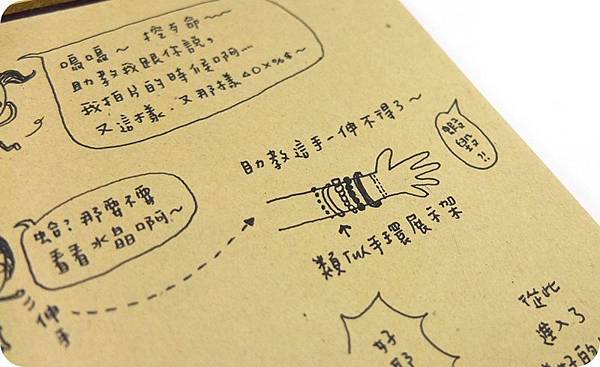 嗚嗚~ 挖歹命~~
助教我跟你說,
我拍片的時候啊...
又這樣,又那樣△○×%$~
助教這手一伸不得了~
蝦
毀?!
蛤?那要不要
看看水晶啊~
伸手
手環展示架
好
從此
進入了
好的